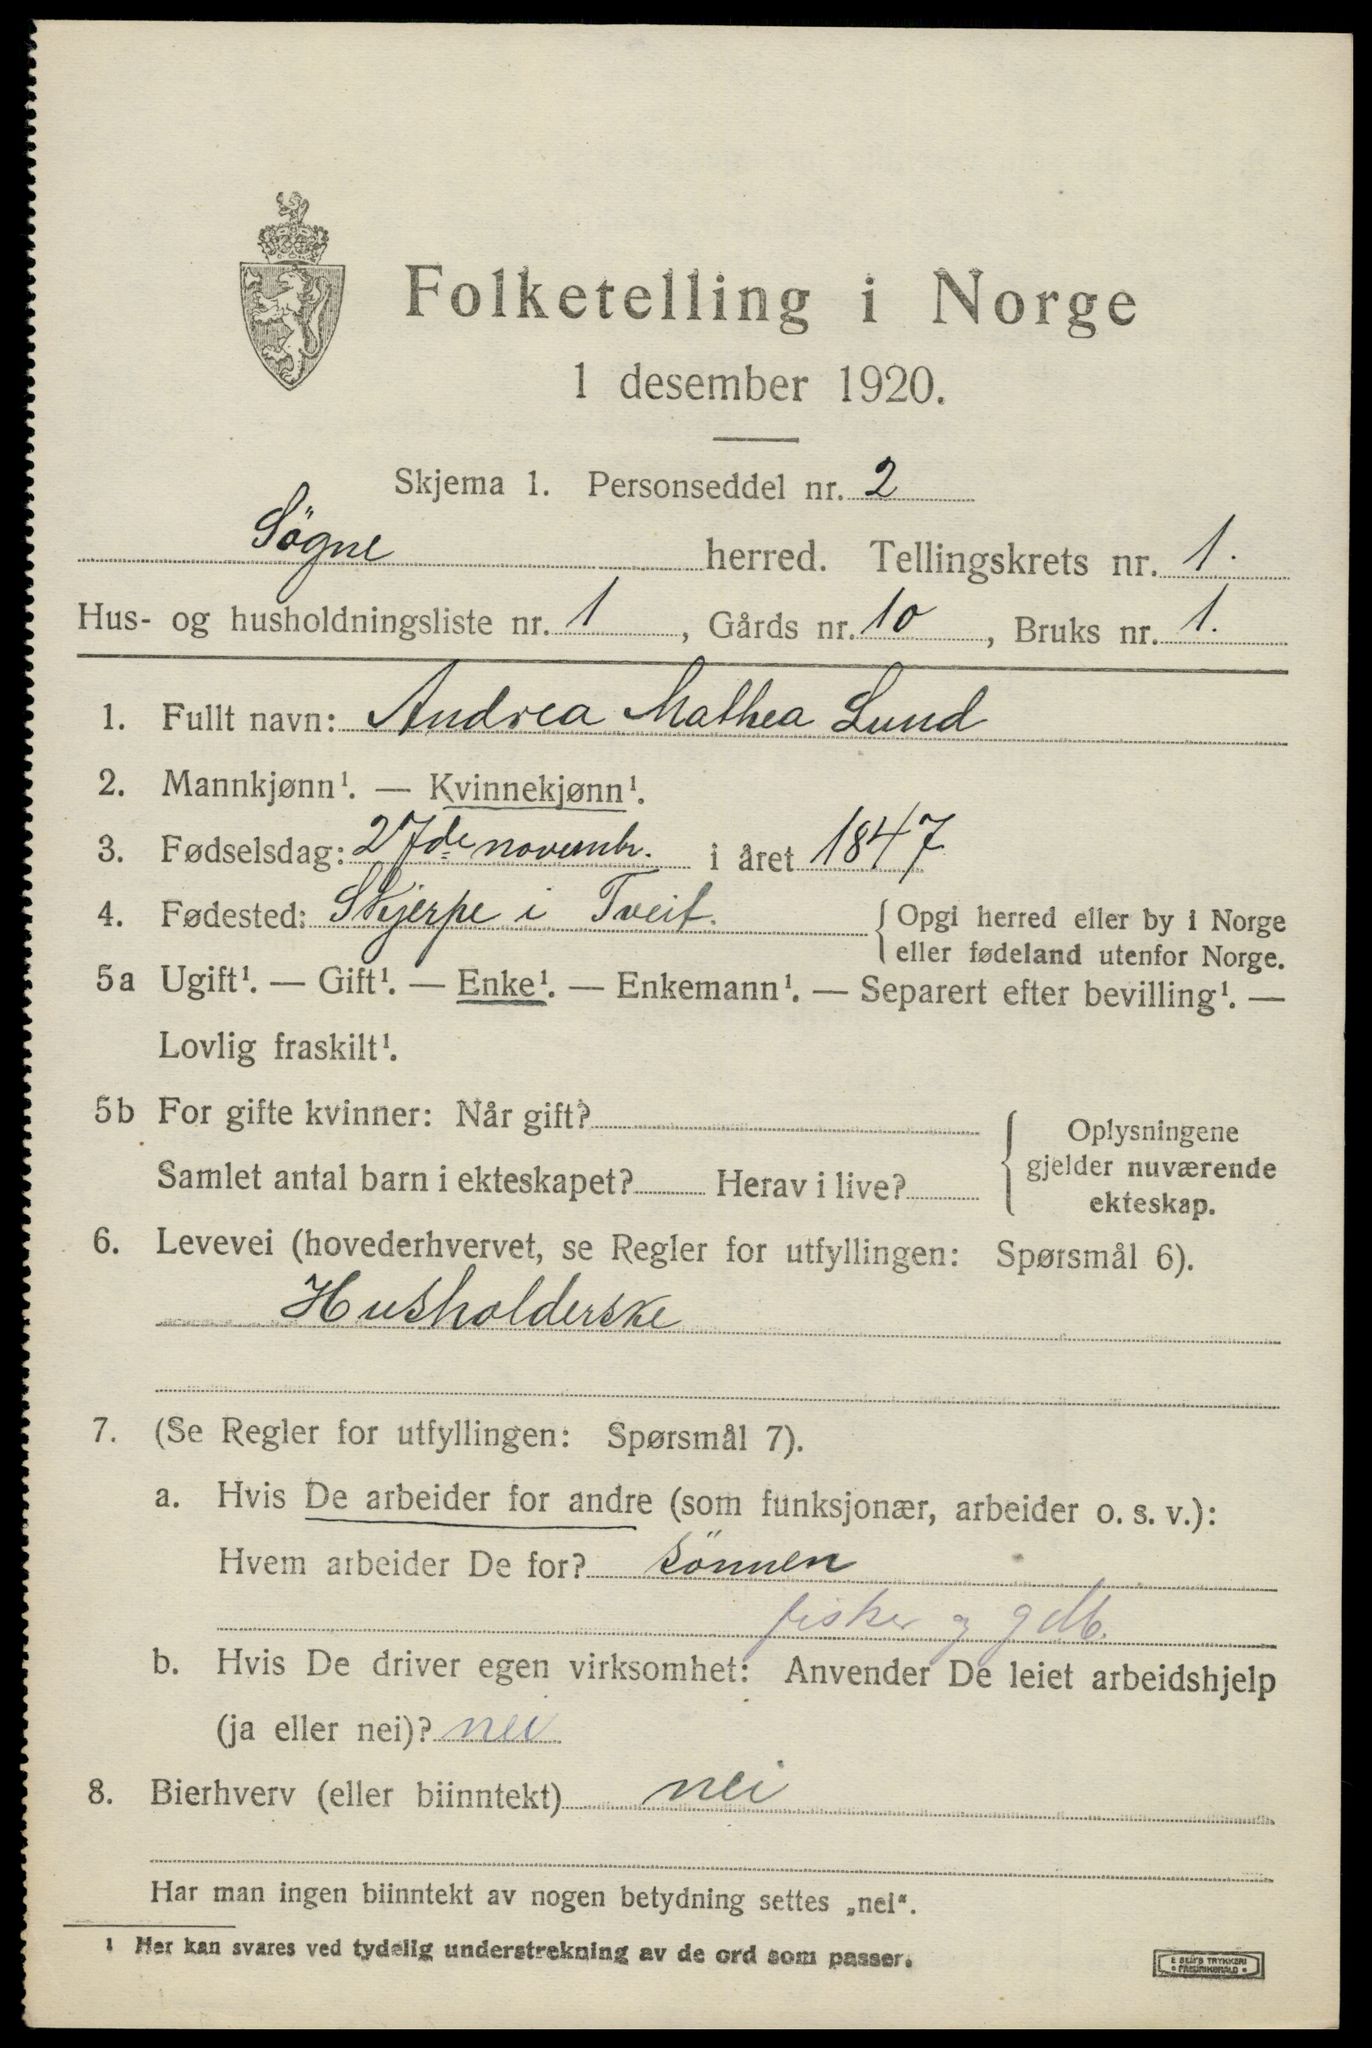 Folketelling i Norge
1 desember 1920.
Skjema 1. Personseddel nr. 2
Søgne herred. Tellingskrets nr. 1.
Hus- og husholdningsliste nr. 1, Gårds nr. 10, Bruks nr. 1.
1. Fullt navn: Andrea Mathea Lund
2. Mannkjønn¹. — Kvinnekjønn¹.
3. Fødselsdag: 27de novembr. i året 1847
4. Fødested: Skjerpe i Tveit. Opgi herred eller by i Norge
eller fødeland utenfor Norge.
5a Ugift¹. — Gift¹. — Enke¹. — Enkemann¹. — Separert efter bevilling¹. —
Lovlig fraskilt¹.
5b For gifte kvinner: Når gift? Oplysningene
gjelder nuværende
Samlet antal barn i ekteskapet? Herav i live?
ekteskap.
6. Levevei (hovederhvervet, se Regler for utfyllingen: Spørsmål 6).
Husholderske
7. (Se Regler for utfyllingen: Spørsmål 7).
a. Hvis De arbeider for andre (som funksjonær, arbeider o. s. v.):
Hvem arbeider De for? sönnen
fisker og gdb.
b. Hvis De driver egen virksomhet: Anvender De leiet arbeidshjelp
(ja eller nei)? nei
8. Bierhverv (eller biinntekt) nei
Har man ingen biinntekt av nogen betydning settes „nei“.
¹ Her kan svares ved tydelig understrekning av de ord som passer.
E SEM'S TRYKKERI
FREDRIKSHALD